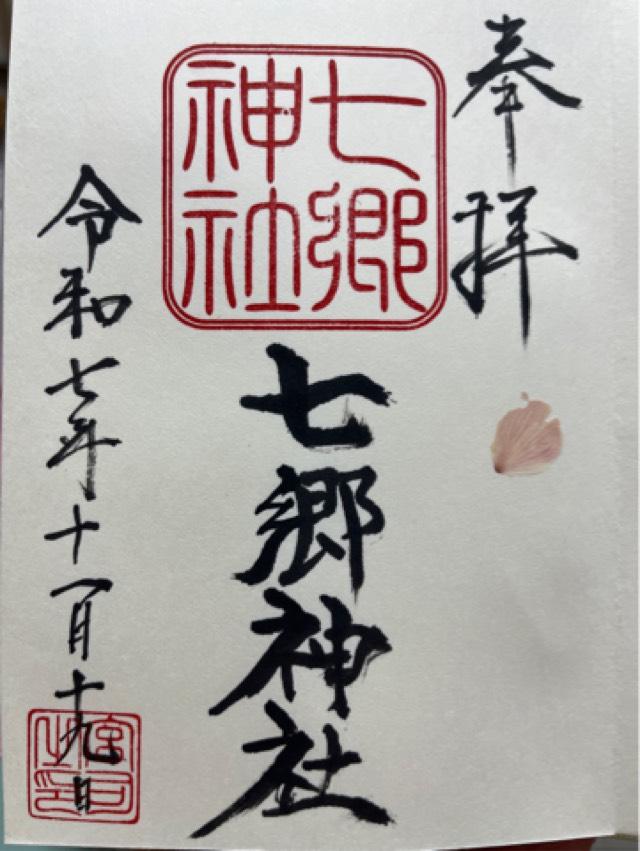 奉拝
七郷
神社
七郷神社
令和七年十一月十九日
宮司
之印